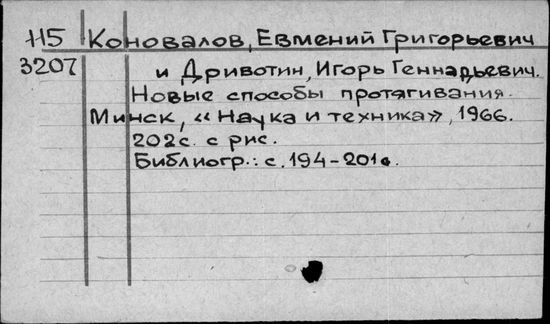 Н5 Коновалов, Евмений Григорьевич
3207 и Дривотин, Игорь Геннадьевич.
Новые способы протягивания.
Минск, «Наука и техника», 1966.
202с. с рис.
Библиогр.: с. 194-201с.